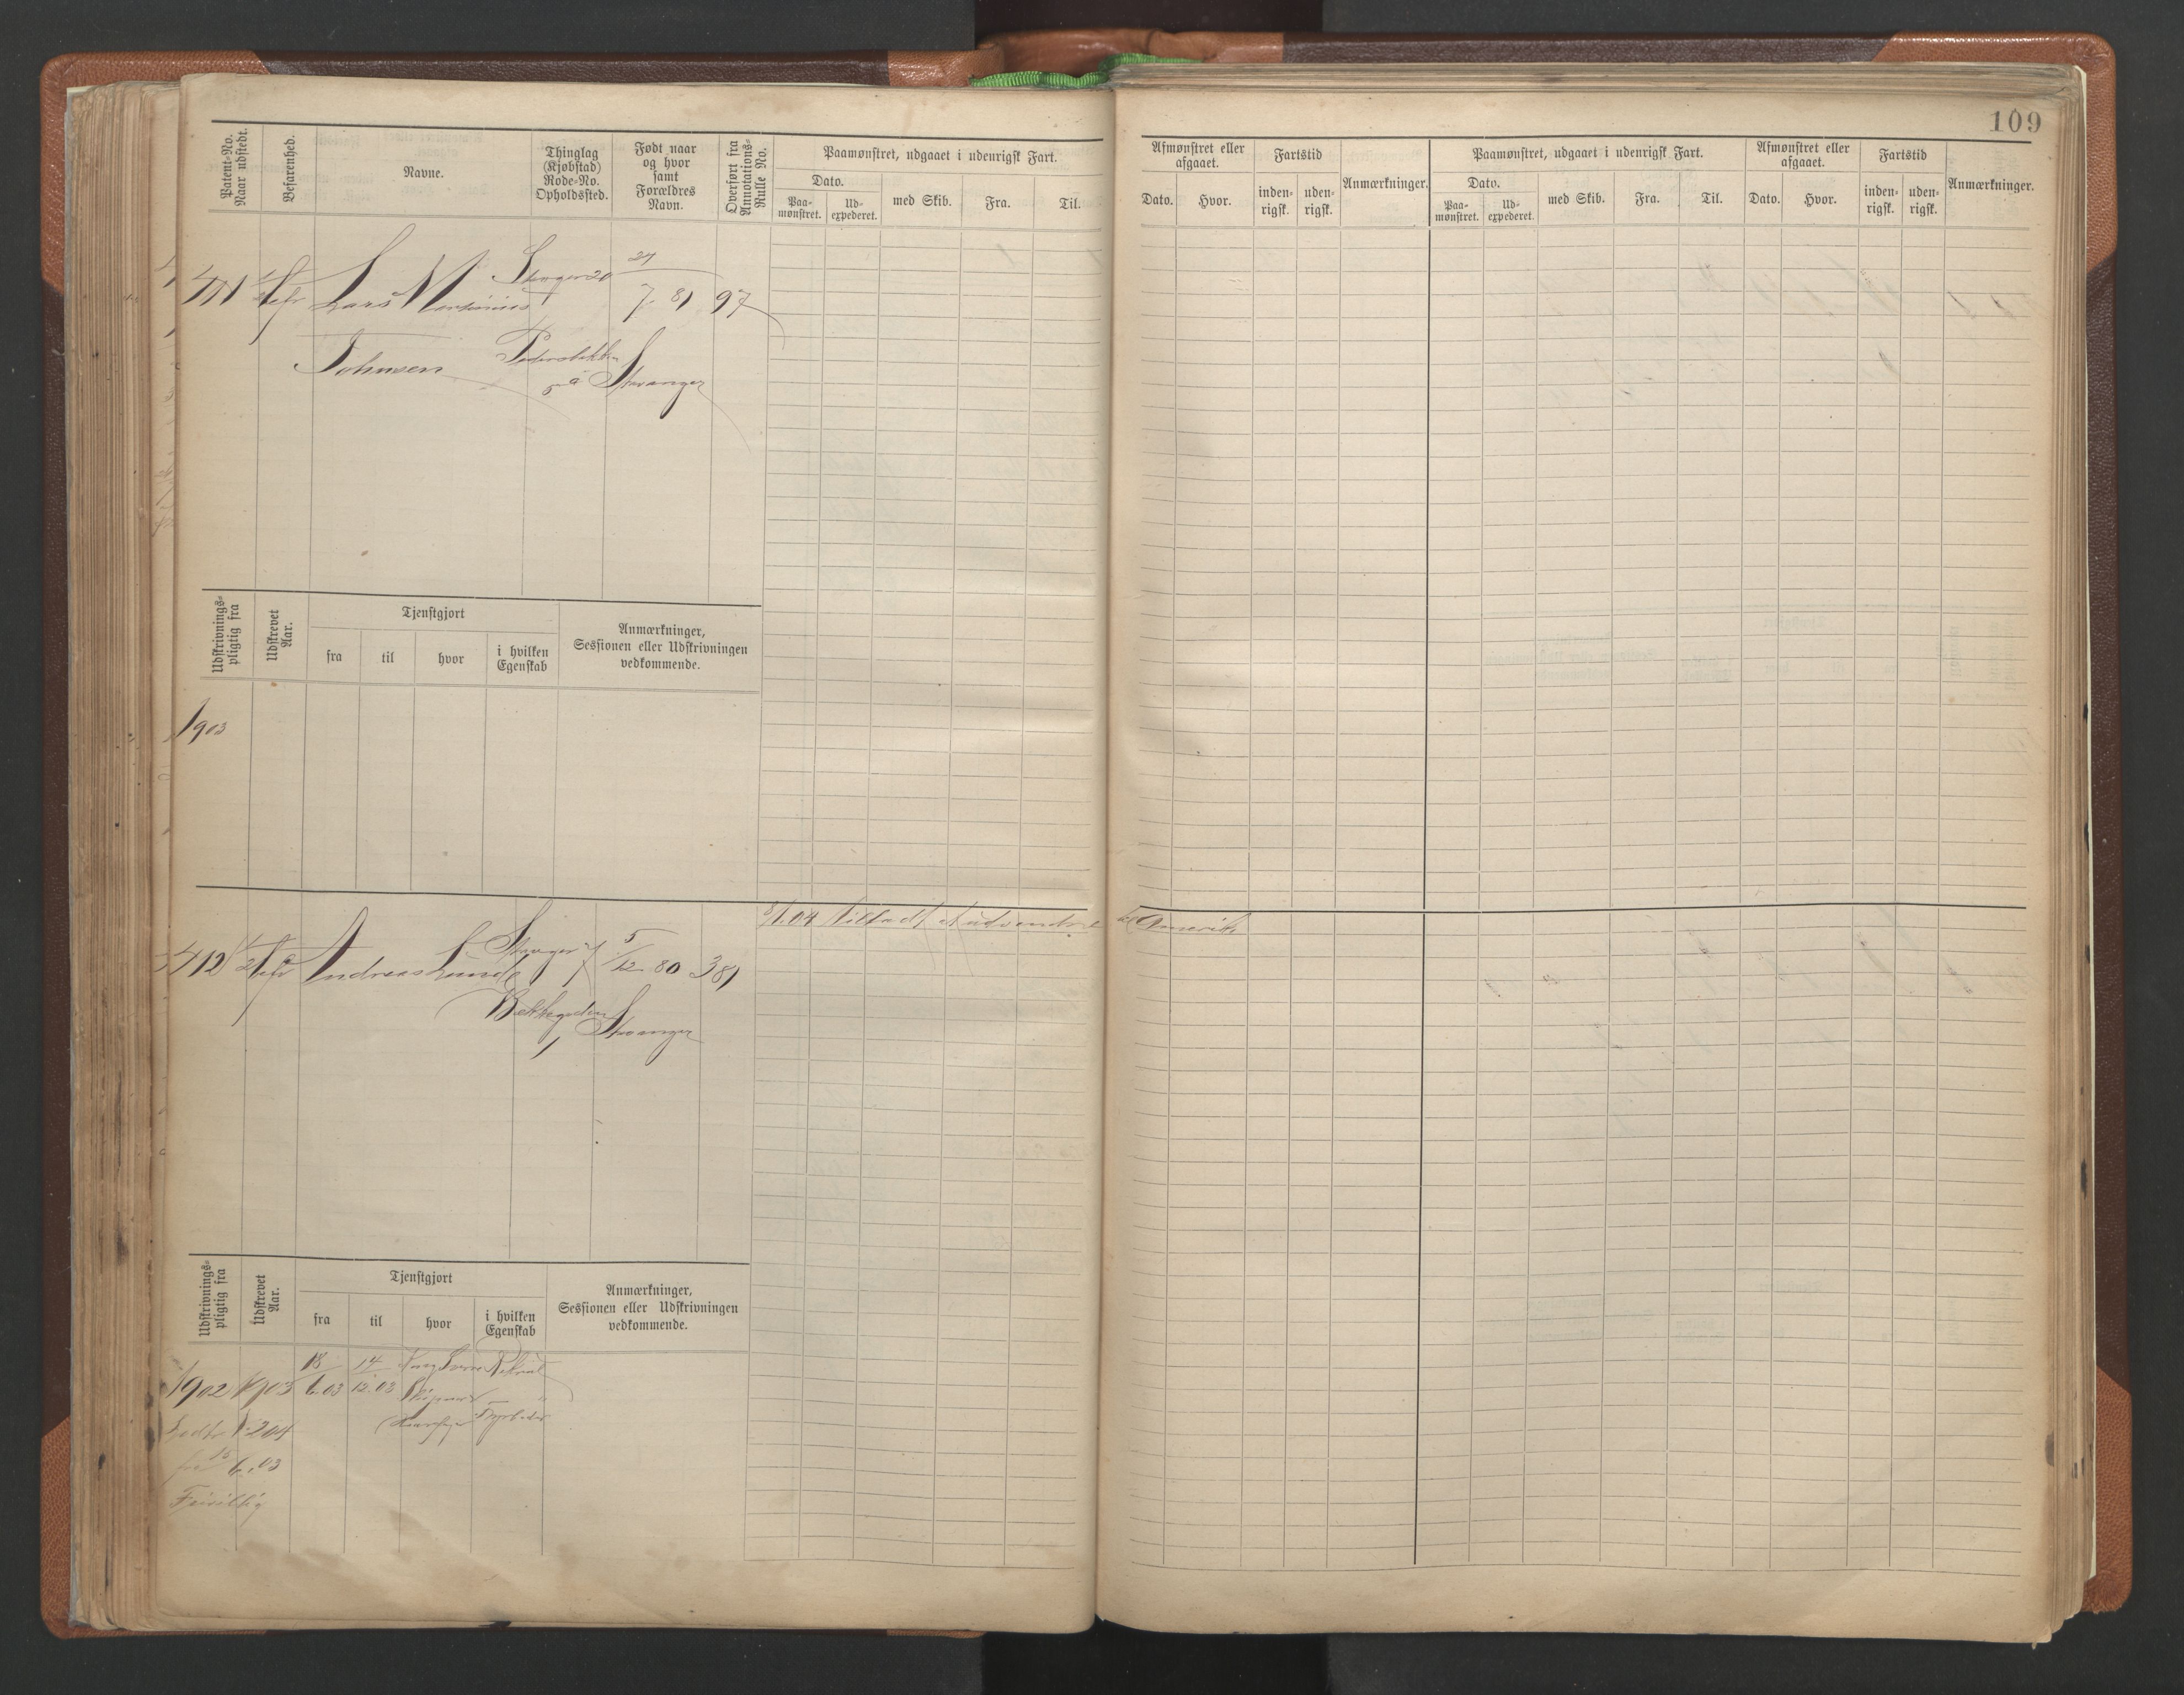 109
Patent-No.
Naar udstedt.
Befarenhed.
Navne.
Thinglag
(Kjøbstad)
Rode-No.
Opholdssted.
Født naar
og hvor
samt
Forældres
Navn.
Overført fra
Annotations-
Rulle No.
Paamønstret, udgaaet i udenrigsk Fart.
Dato.
Paa-
mønstret.
Ud-
expederet.
med Skib.
Fra.
Til.
Afmønstret eller
afgaaet.
Dato.
Hvor.
Fartstid
inden-
rigsk.
uden-
rigsk.
Anmærkninger.
Paamønstret, udgaaet i udenrigsk Fart.
Dato.
Paa-
mønstret.
Ud-
expederet.
med Skib.
Fra.
Til.
Afmønstret eller
afgaaet.
Dato.
Hvor.
Fartstid
inden-
rigsk.
uden-
rigsk.
Anmærkninger.
411
Lars Martinius
Johnsen
27/7 81
97
Stavanger
Udskrivnings-
pligtig fra
Udskrevet
Aar.
Tjenstgjort
fra
til
hvor
i hvilken
Egenskab
Anmærkninger,
Sessionen eller Udskrivningen
vedkommende.
1903
412
Andreas Lunde
5/12 80
381
Bekhagaden
1
Stavanger
8/1.04 Tilladt at udvandre til Amerika
Udskrivnings-
pligtig fra
Udskrevet
Aar.
Tjenstgjort
fra
til
hvor
i hvilken
Egenskab
Anmærkninger,
Sessionen eller Udskrivningen
vedkommende.
1902 1903 18/6.03 14/12.03 Rekrut
Fyrbøder
204
fra 15/6.03
Frivillig